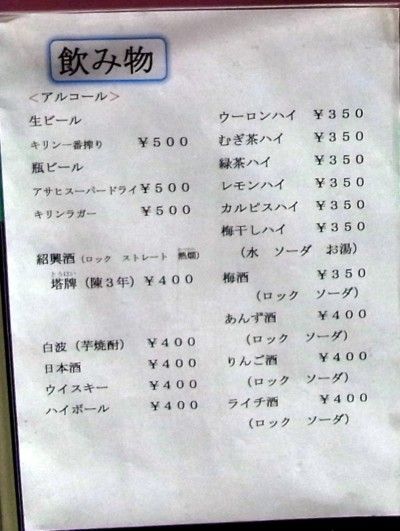 飲み物
<アルコール>
生ビール
キリン一番搾り ￥５００
瓶ビール
アサヒスーパードライ ￥５００
キリンラガー ￥５００
紹興酒（ロック ストレート 熱燗）
塔牌（陳３年） ￥４００
白波（芋焼酎） ￥４００
日本酒 ￥４００
ウイスキー ￥４００
ハイボール ￥４００
ウーロンハイ ￥３５０
むぎ茶ハイ ￥３５０
緑茶ハイ ￥３５０
レモンハイ ￥３５０
カルピスハイ ￥３５０
梅干しハイ ￥３５０
（水 ソーダ お湯）
梅酒 ￥３５０
（ロック ソーダ）
あんず酒 ￥４００
（ロック ソーダ）
りんご酒 ￥４００
（ロック ソーダ）
ライチ酒 ￥４００
（ロック ソーダ）